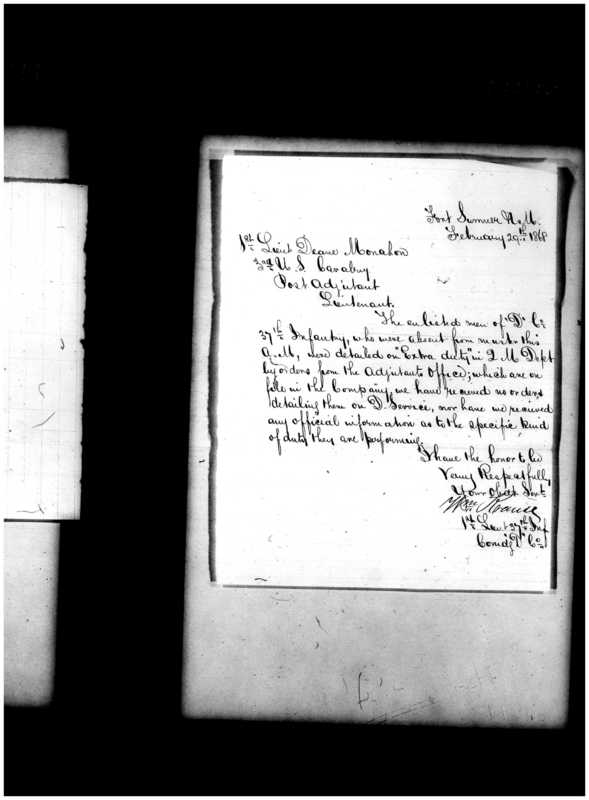 Fort Sumner N. M.
February 29th 1868
1st Lieut Deane Monahon
3rd U. S. Cavalry
Post Adjutant
Lieutenant.
The enlisted men of "D" Co
37th Infantry, who were absent from muster this
A. M., were detailed on "Extra duty" in Q M Dept
by orders from the Adjutants Office; which are on
file in the Company, we have received no orders
detailing them on D. Service, nor have we received
any official information as to the specific kind
of duty they are performing.
I have the honor to be
Very Respectfully
Your Obdt Servt
Wm Krause
1st Lieut 37th Inf
Comdg "D" Co